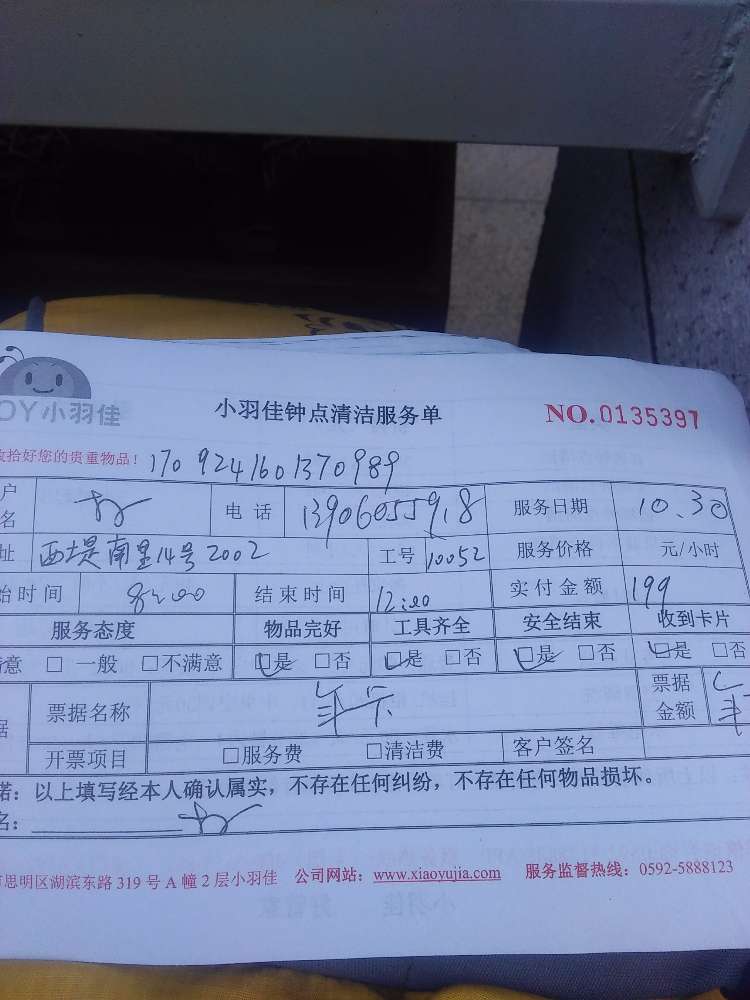 OY小羽佳 小羽佳钟点清洁服务单 NO.0135397
拾好您的贵重物品! 1709241601370989
户名 电话 13906055918 服务日期 10.30
址 西堤南里14号2002 工号 10052 服务价格 元/小时
始时间 8:00 结束时间 12:00 实付金额 199
服务态度 物品完好 工具齐全 安全结束 收到卡片
意 □ 一般 □不满意 □是 □否 □是 □否 □是 □否 □是 □否
据 票据名称 年卡 票据金额
开票项目 □服务费 □清洁费 客户签名
诺:以上填写经本人确认属实,不存在任何纠纷,不存在任何物品损坏。
名:
思明区湖滨东路 319 号 A 幢 2 层小羽佳 公司网站:www.xiaoyujia.com 服务监督热线:0592-5888123